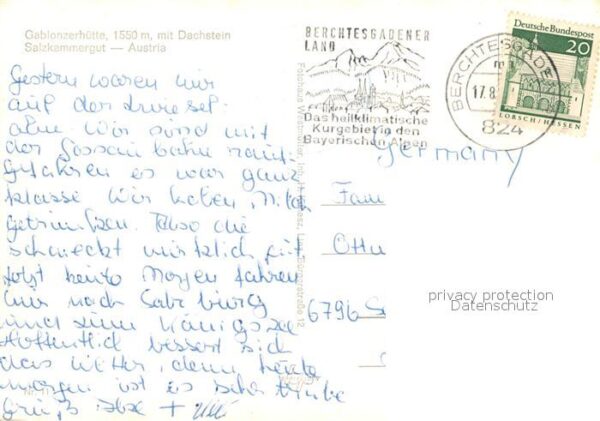 Gablonzerhütte, 1550 m, mit Dachstein
Salzkammergut — Austria
Gestern waren wir
auf der Zwiesel-
alm Wir sind mit
der Gosaubahn rauf-
gefahren es war ganz
klasse Wir haben Milch
getrunken. Also die
schmeckt wirklich gut
Jetzt heute Morgen fahren
wir nach Salzburg
und zum Königssee
Hoffentlich bessert sich
das Wetter, denn heute
morgen ist es sehr trübe
Gruß
BERCHTESGADENER
LAND
Das heilklimatische
Kurgebiet in den
Bayerischen Alpen
BERCHTESGADEN
17.8.
824
Deutsche Bundespost
20
LORSCH/HESSEN
Germany
Fam
Ottw
6796
privacy protection
Datenschutz